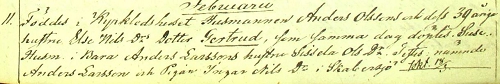 Februari
11. Föddes i Kyrkledshuset Husmannen Anders Olsens och dess 39 årig
hustru Else Nils Dr Dotter Gertrud, som samma dag döptes. Susc.
Husm. i Bara Anders Larssons hustru Sissela Ols Dr. Testes, nämnde
Anders Larsson och Pigan Ingar Nils Dr i Skabersjö